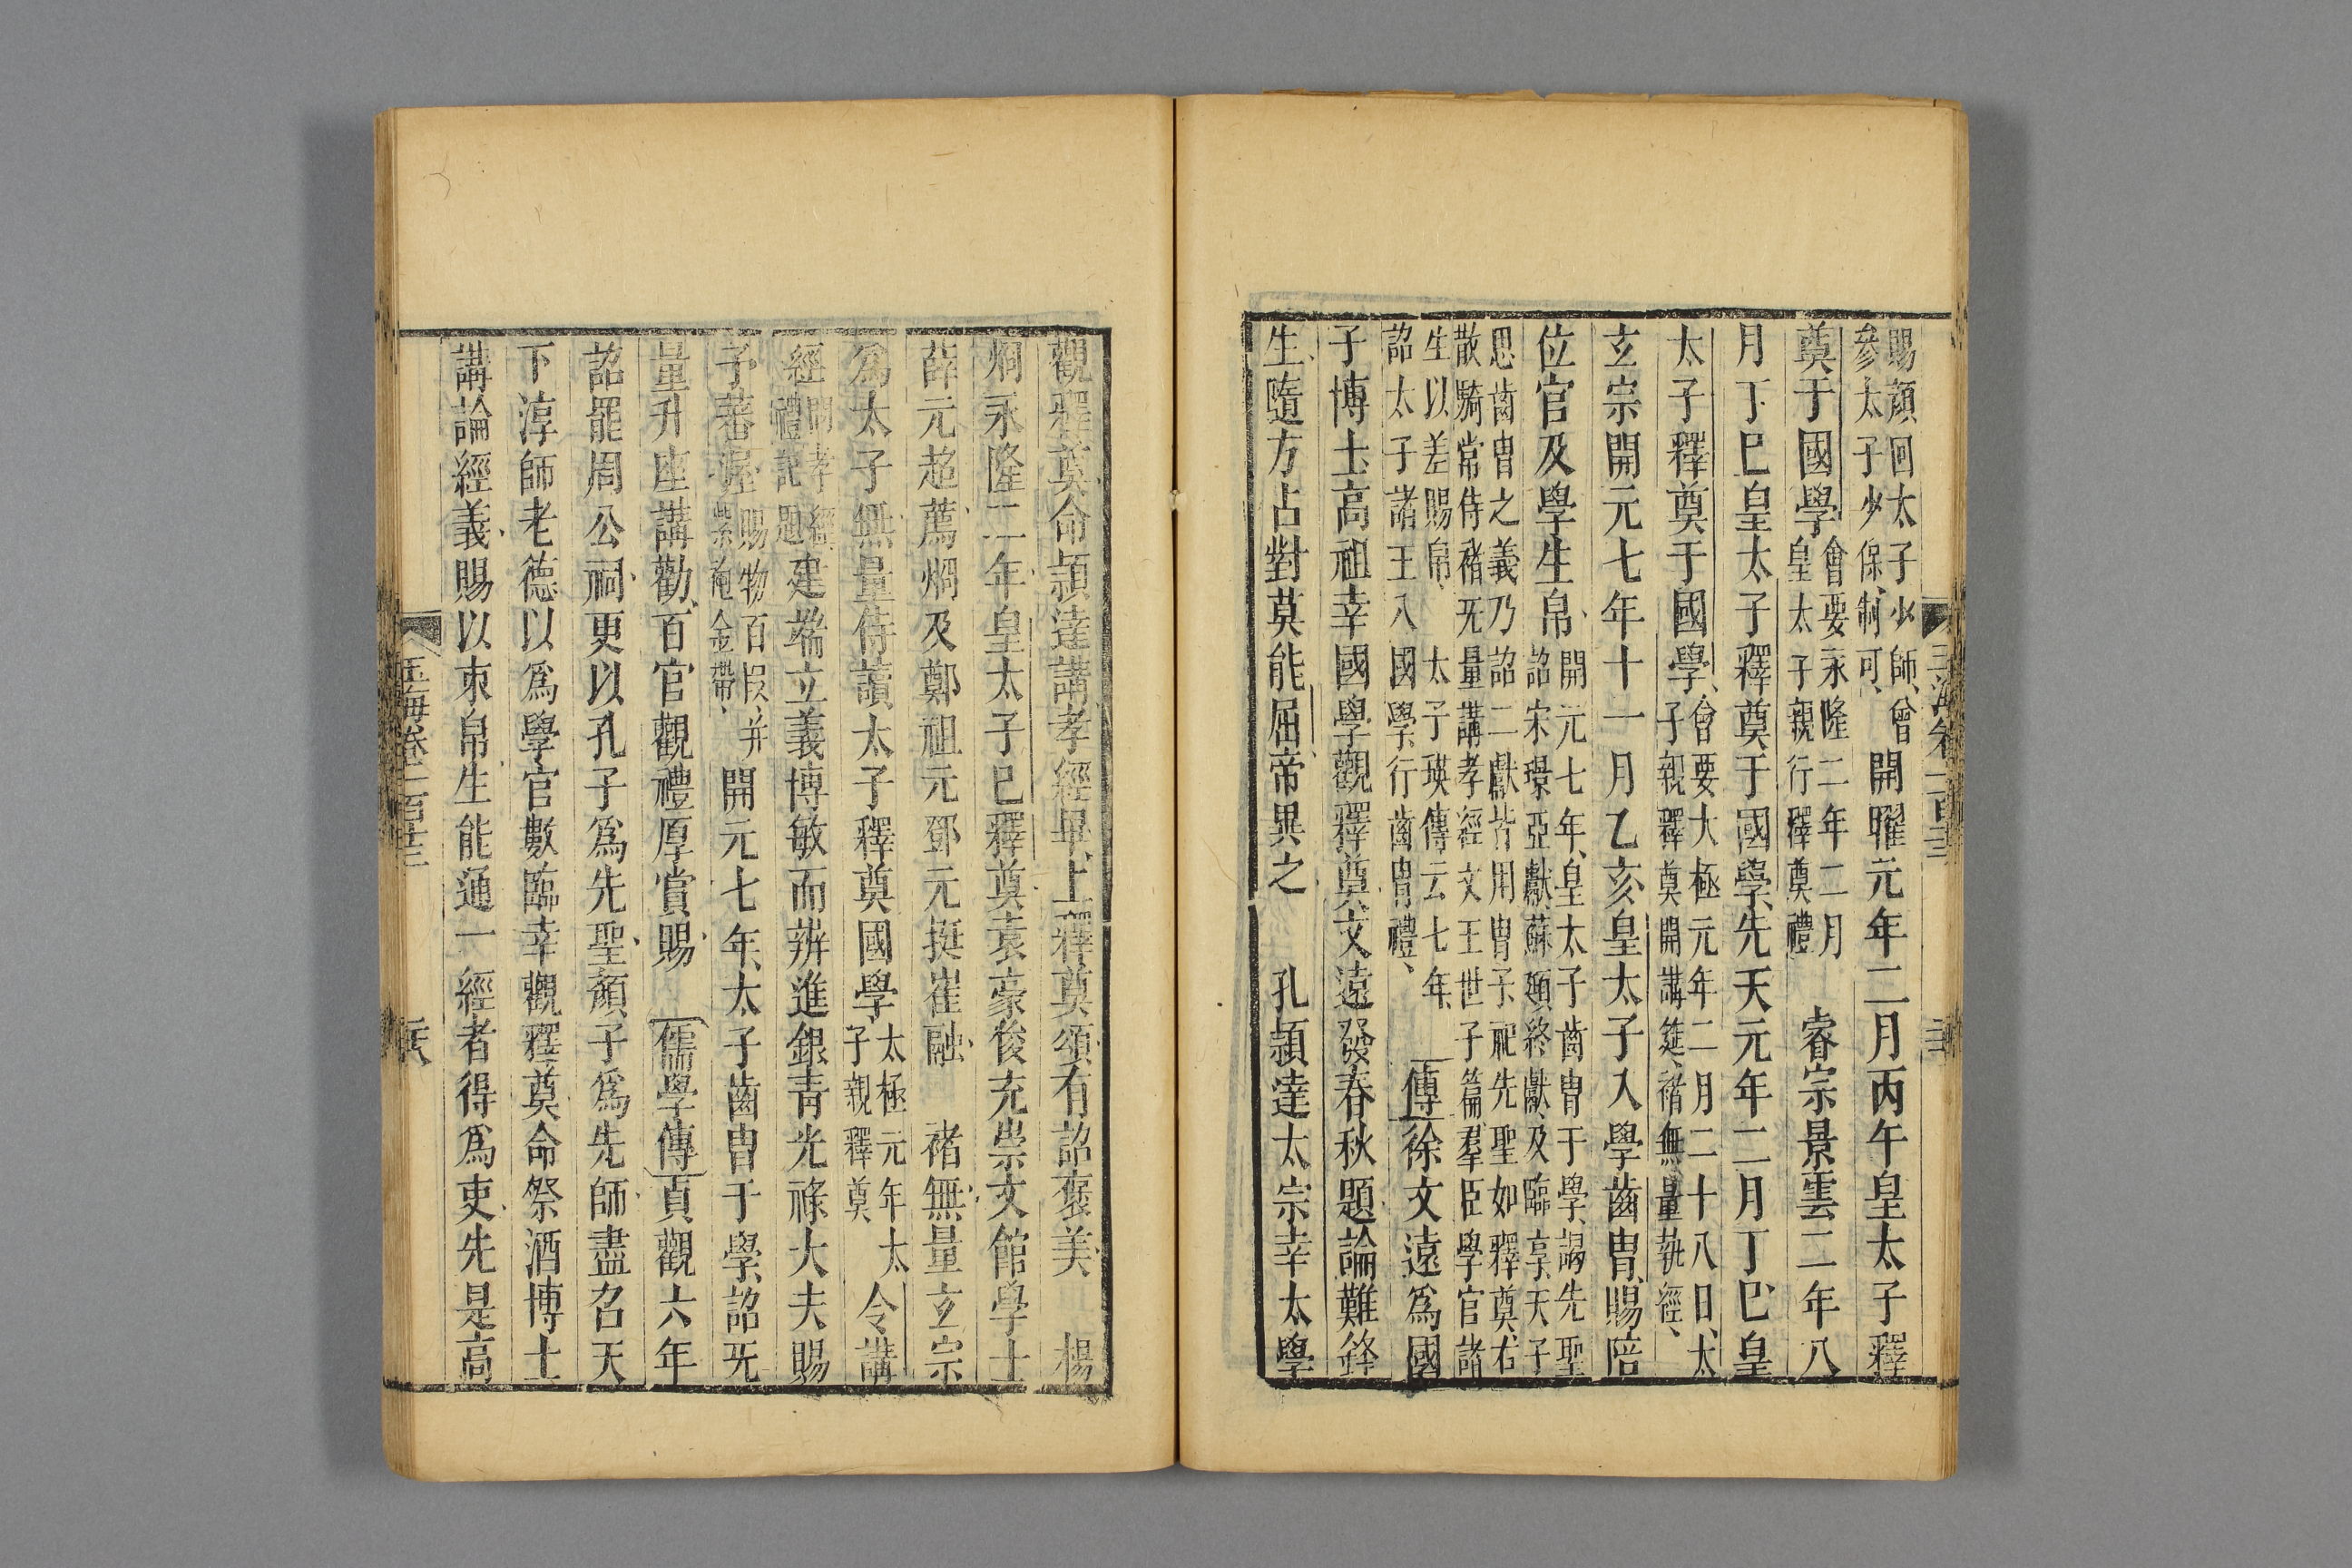 賜顏回太子少師曾
參太子少保制可
開曜元年二月丙午皇太子釋
奠于國學
會要永隆二年二月
皇太子親行釋奠禮
睿宗景雲二年八
月丁巳皇太子釋奠于國學先天元年二月丁巳皇
太子釋奠于國學
會要大極元年二月二十八日太
子親釋奠開講筵褚無量執經
玄宗開元七年十一月乙亥皇太子入學齒胄賜陪
位官及學生帛
開元七年皇太子齒胄于學謁先聖
詔宋璟亞獻蘇頲終獻及臨享天子
思齒胄之義乃詔二獻皆用胄子祀先聖如釋奠右
散騎常侍褚无量講孝經文王世子篇羣臣學官諸
生以差賜帛 太子瑛傳云七年
詔太子諸王入國學行齒胄禮
傳徐文遠爲國
子博士高祖幸國學觀釋奠文遠發春秋題論難鋒
生隨方占對莫能屈帝異之 孔頴達太宗幸太學
觀釋奠命頴達講孝經畢上釋奠頌有詔褒美 楊
烱永隆二年皇太子已釋奠表豪俊充崇文館學士
薛元超薦烱及鄭祖元鄧元挺崔融 褚無量玄宗
爲太子無量侍讀太子釋奠國學
太極元年太
子親釋奠
令講
經
開孝經
禮記題
建端立義博敏而辨進銀青光祿大夫賜
予蕃渥
賜物百段并
紫袍金帶
開元七年太子齒胄于學詔无
量升座講勸百官觀禮厚賞賜 儒學傳貞觀六年
詔罷周公祠更以孔子爲先聖顏子爲先師盡召天
下淳師老德以爲學官數臨幸觀釋奠命祭酒博士
講論經義賜以束帛生能通一經者得爲吏先是高
玉海卷一百十三